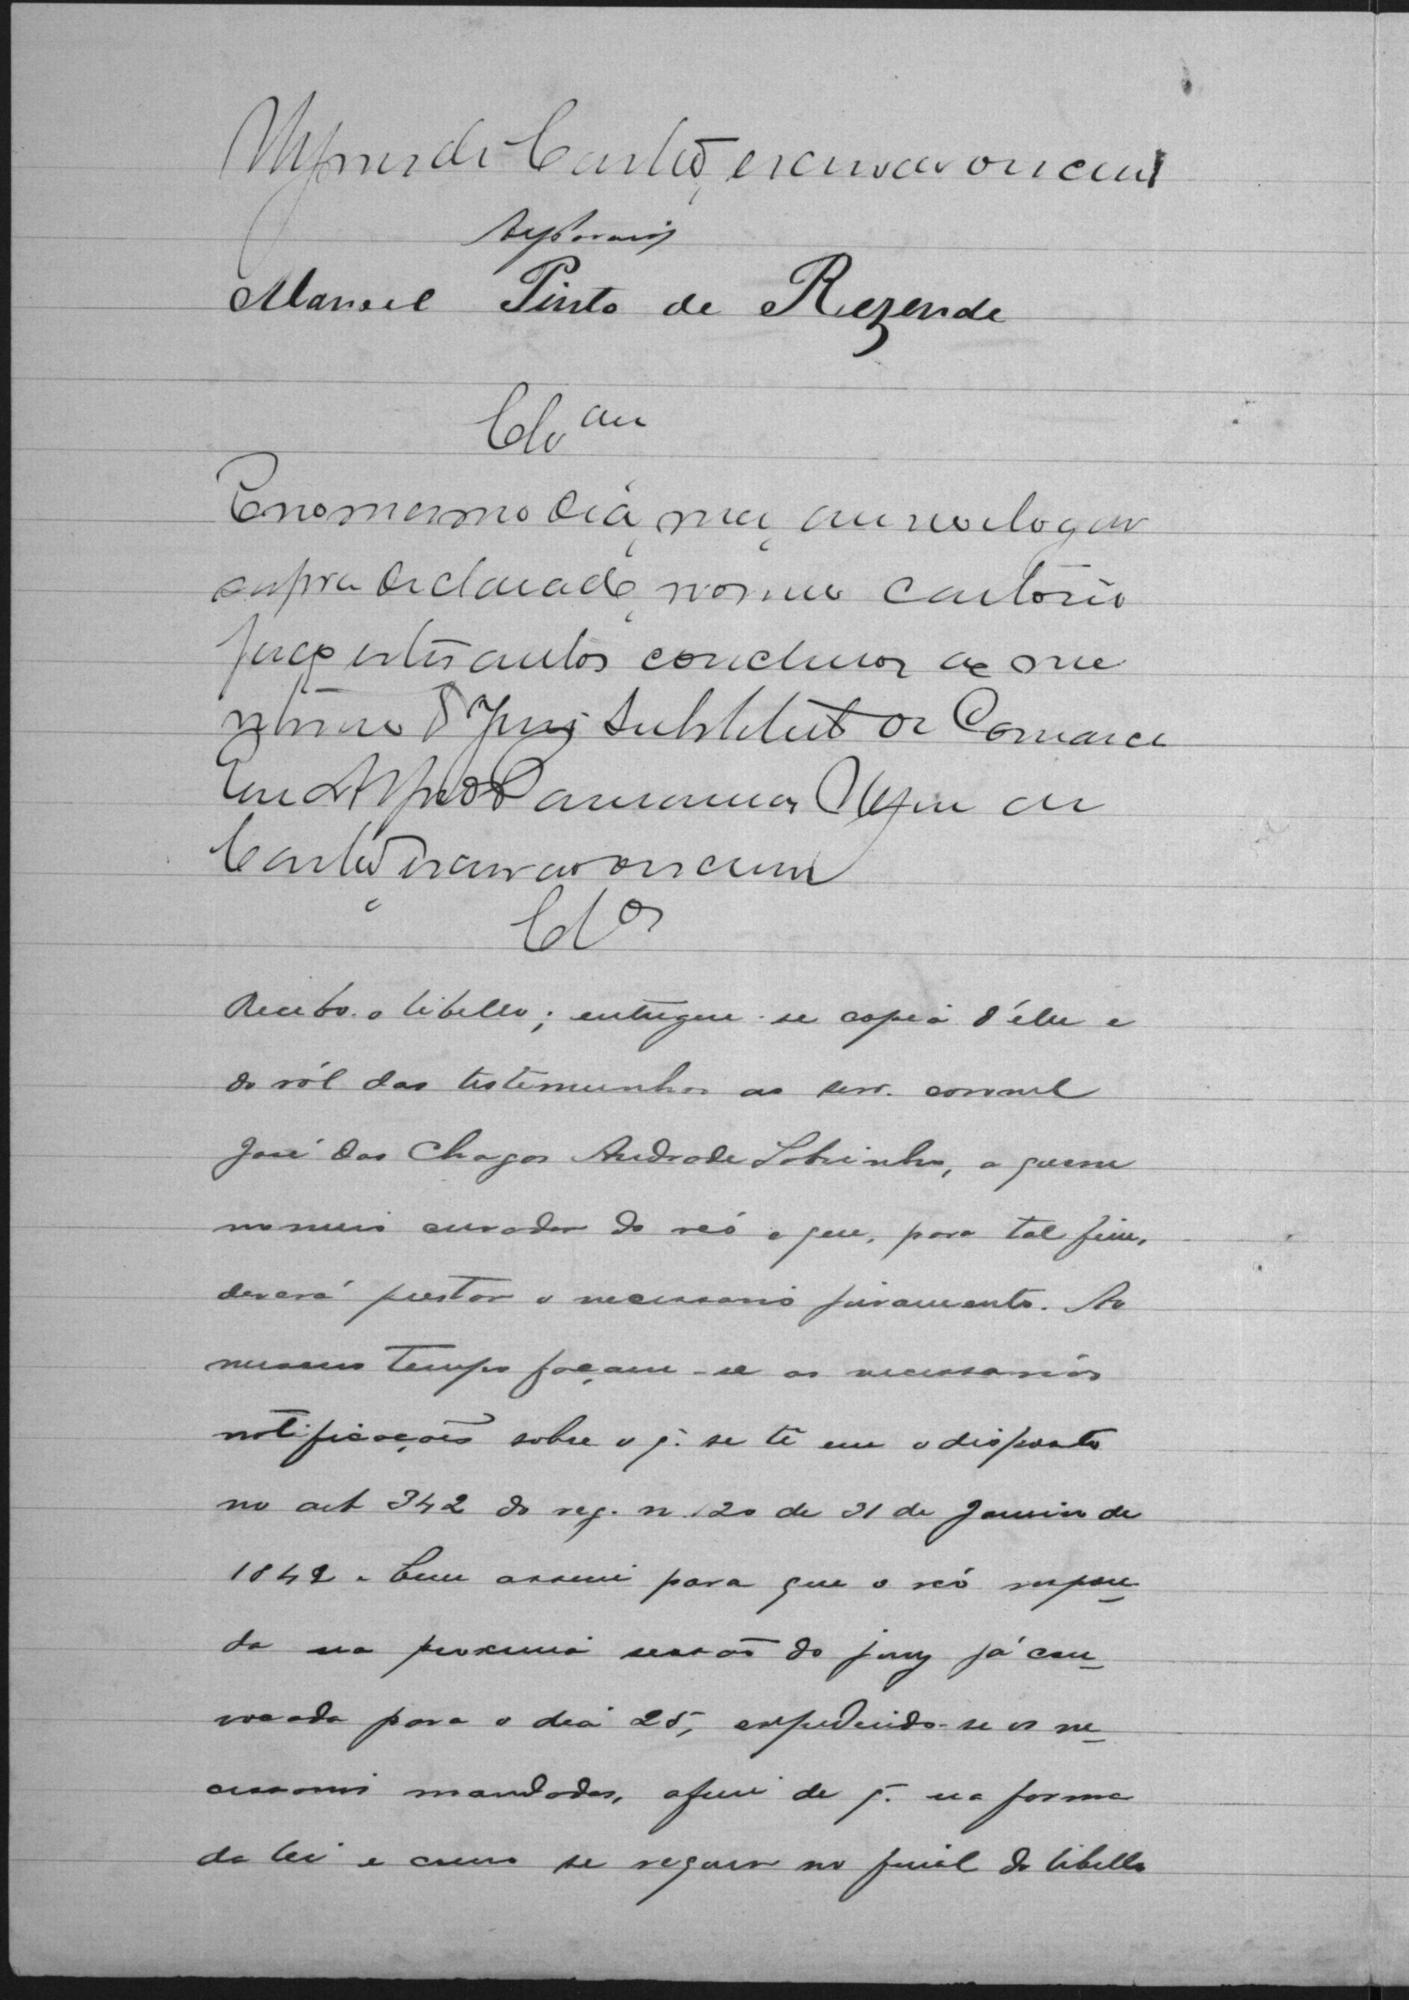 de Castro, escrivão o escrevi
Manoel Pinto de Rezende
Clsão
E no mesmo dia, mez, anno e logar
supra declarado, no meu cartorio
faço estes autos conclusos ao me
ritissimo Dr Juiz Substituto da Comarca
Eu Alfredo de
Castro, escrivão o escrevi
Clos
Recebo o libello; entregue-se copia d'elle e
do ról das testemunhas ao snr. coronel
José das Chagas Andrade Sobrinho, a quem
nomeio curador do reó e que, para tal fim,
deverá prestar o necessario juramento. Ao
mesmo tempo façam-se as necessarias
notificações sobre o q. se tê em o disposto
no art 342 do reg. n 120 de 31 de Janeiro de
1842. Bem assim para que o reó respon-
da na proxima sessão do jury já con-
vocada para o dia 25, expedindo-se os ne-
cessarios mandados, afim de q. na forma
da lei e como se requer no final do libello